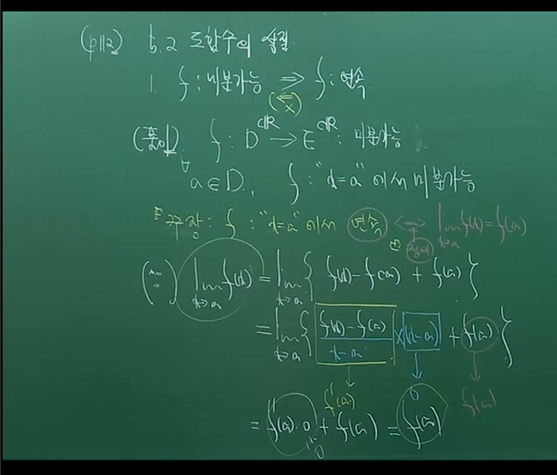 (p112) 5.2 도함수의 성질
1. f : 미분가능 ⇒ f : 연속
(⇐ ×)
(풀이). f : D^{⊂ℝ} → E^{⊂ℝ} : 미분가능
∀a∈D., f : "x=a"에서 미분가능
주장: f : "x=a"에서 연속 ⟷ lim_{x→a} f(x) = f(a)
정의
(∵) lim_{x→a} f(x) = lim_{x→a} { f(x) - f(a) + f(a) }
= lim_{x→a} { \frac{f(x) - f(a)}{x-a} × (x-a) + f(a) }
f'(a) 0 f(a)
= f'(a)·0 + f(a) = f(a)
0